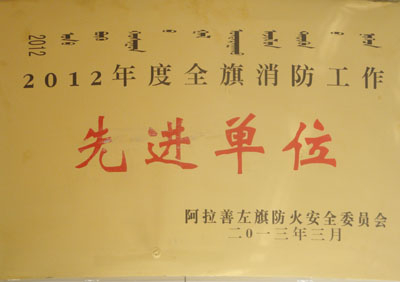 2012
2012年度全旗消防工作
先进单位
阿拉善左旗防火安全委员会
二0一三年三月